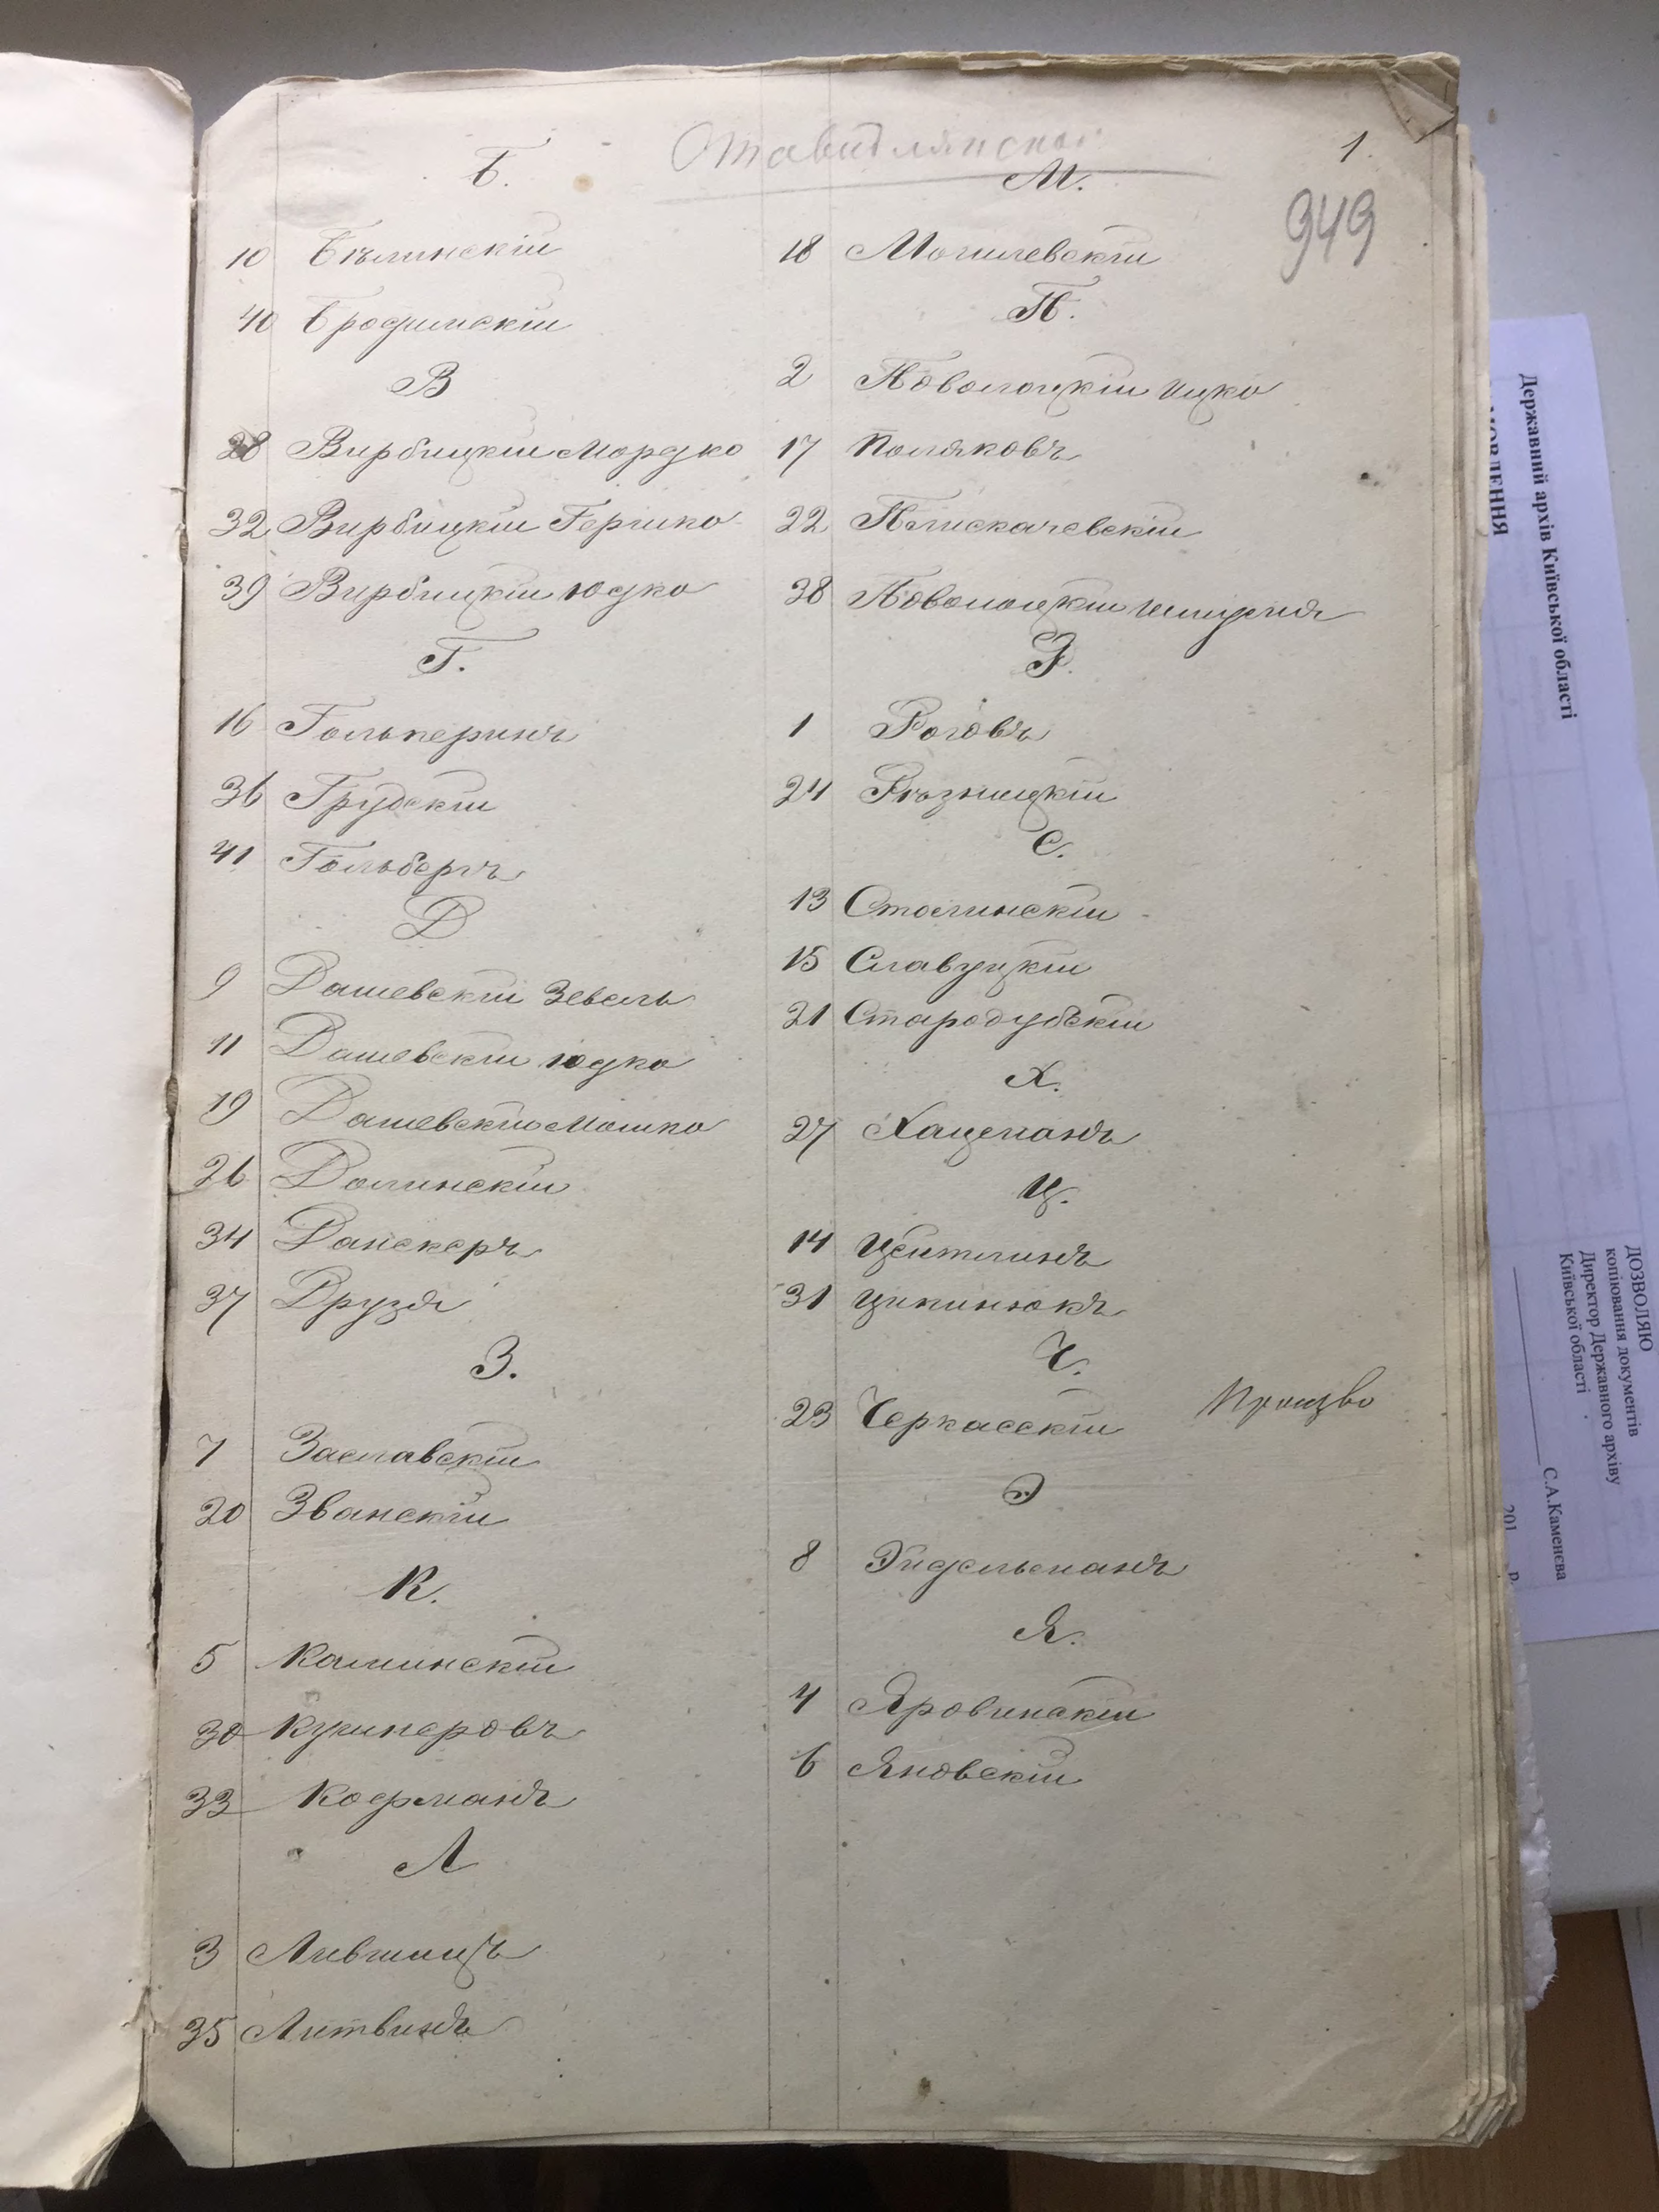 Ставидлянской
1.
949
Б.
10 Бѣлинскій
40 Бродинскій
В
28 Вирбицкій Мордко
32 Вирбицкій Гершко
39 Вирбицкій Юдко
Г.
16 Гольперинъ
36 Грудскій
41 Гольбергъ
Д
9 Дашевскій Зевель
11 Дашевскій Юдко
19 Дашевскій Мошко
26 Долинскій
34 Данскеръ
37 Друзя
З.
7 Заславскій
20 Званскій
К.
5 Калинскій
30 Кушнеровъ
33 Кофманъ
Л
3 Лившицъ
35 Литвинъ
М.
18 Могилевскій
П.
2 Поволоцкій Ицко
17 Поляковъ
22 Плискачевскій
38 Поволоцкій
Р.
1 Роговъ
24 Рѣзницкій
С.
13 Столинскій
15 Славуцкій
21 Стародубскій
Х.
27 Хацеманъ
Ц.
14 Цейтлинъ
31 Ципинюкъ
Ч.
23 Черкасскій
Э
8 Эйдельманъ
Я.
4 Яровинскій
6 Яновскій
Державний архів Київської області
ДОЗВОЛЯЮ
копіювання документів
Директор Державного архіву
Київської області
С.А.Каменєва
201 р.